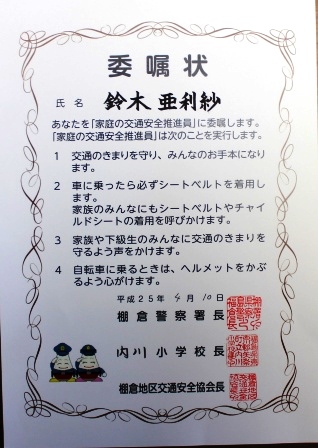 委嘱状
氏名 鈴木 亜利紗
あなたを「家庭の交通安全推進員」に委嘱します。
「家庭の交通安全推進員」は次のことを実行します。
1 交通のきまりを守り、みんなのお手本になり
ます。
2 車に乗ったら必ずシートベルトを着用し
ます。
家族のみんなにもシートベルトやチャイ
ルドシートの着用を呼びかけます。
3 家族や下級生のみんなに交通のきまりを
守るよう声をかけます。
4 自転車に乗るときは、ヘルメットをかぶ
るよう心がけます。
平成25年 4月 10日
棚倉警察署長
内川小学校長
棚倉地区交通安全協会長